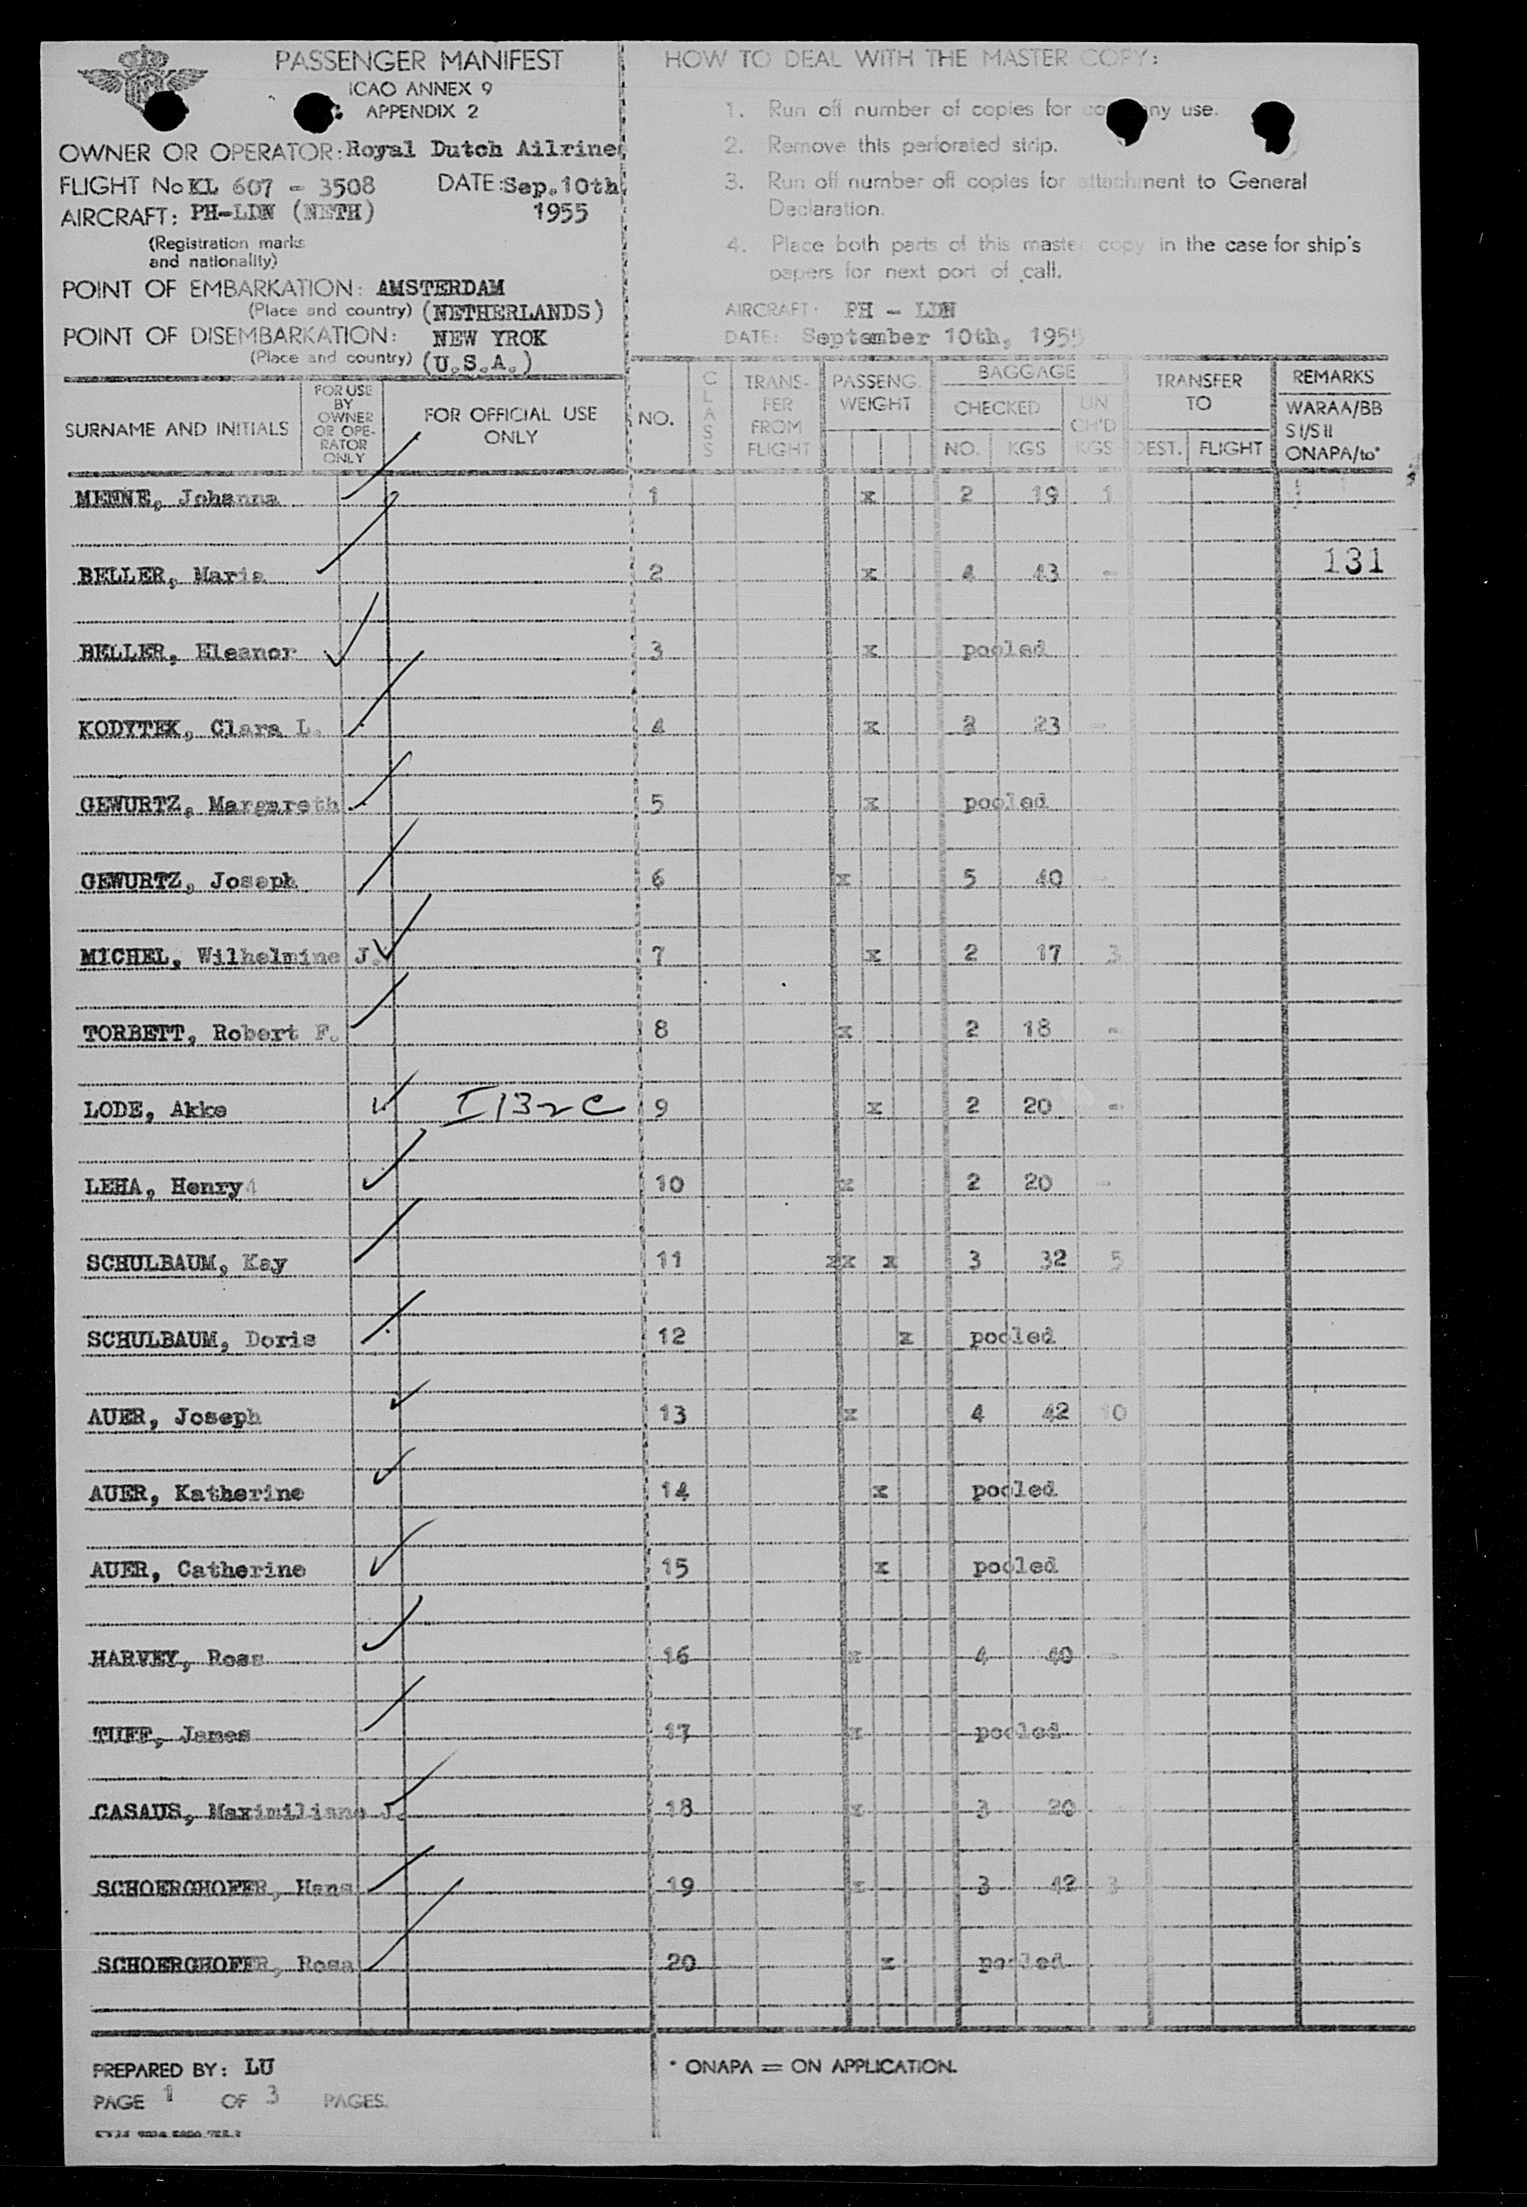 PASSENGER MANIFEST
ICAO ANNEX 9
APPENDIX 2
OWNER OR OPERATOR: Royal Dutch Ailrines
FLIGHT No KL 607 - 3508 DATE: Sep. 10th,
AIRCRAFT: PH-LDN (NETH) 1955
(Registration marks
and nationality)
POINT OF EMBARKATION: AMSTERDAM
(Place and country) (NETHERLANDS)
POINT OF DISEMBARKATION: NEW YROK
(Place and country) (U.S.A.)
HOW TO DEAL WITH THE MASTER COPY:
1. Run off number of copies for company use.
2. Remove this perforated strip.
3. Run off number off copies for attachment to General
Declaration.
4. Place both parts of this master copy in the case for ship's
papers for next port of call.
AIRCRAFT: PH - LDN
DATE: September 10th, 1955
SURNAME AND INITIALS
FOR USE
BY
OWNER
OR OPE-
RATOR
ONLY
FOR OFFICIAL USE
ONLY
NO.
CLASS
TRANS-
FER
FROM
FLIGHT
PASSENG.
WEIGHT
BAGGAGE
CHECKED
NO. KGS
UN
CH'D
KGS
TRANSFER
TO
DEST. FLIGHT
REMARKS
WARAA/BB
S I/S II
ONAPA/to*
MENNE, Johanna 1 x 2 19 1
131
BELLER, Maria 2 x 4 43 -
BELLER, Eleanor 3 x pooled
KODYTEK, Clara L. 4 x 2 23 -
GEWURTZ, Margareth 5 x pooled
GEWURTZ, Joseph 6 x 5 40 -
MICHEL, Wilhelmine J. 7 x 2 17 3
TORBETT, Robert F. 8 x 2 18 -
LODE, Akke I 132 C 9 x 2 20 -
LEHA, Henry 10 x 2 20 -
SCHULBAUM, Kay 11 xx x 3 32 5
SCHULBAUM, Doris 12 x pooled
AUER, Joseph 13 x 4 42 10
AUER, Katherine 14 x pooled
AUER, Catherine 15 x pooled
HARVEY, Ross 16 x 4 40 -
TUFF, James 17 x pooled
CASAUS, Maximiliano J. 18 x 3 20
SCHOERGHOFER, Hans 19 x 3 42 3
SCHOERGHOFER, Rosa 20 x pooled
PREPARED BY: LU
PAGE 1 OF 3 PAGES.
* ONAPA = ON APPLICATION.